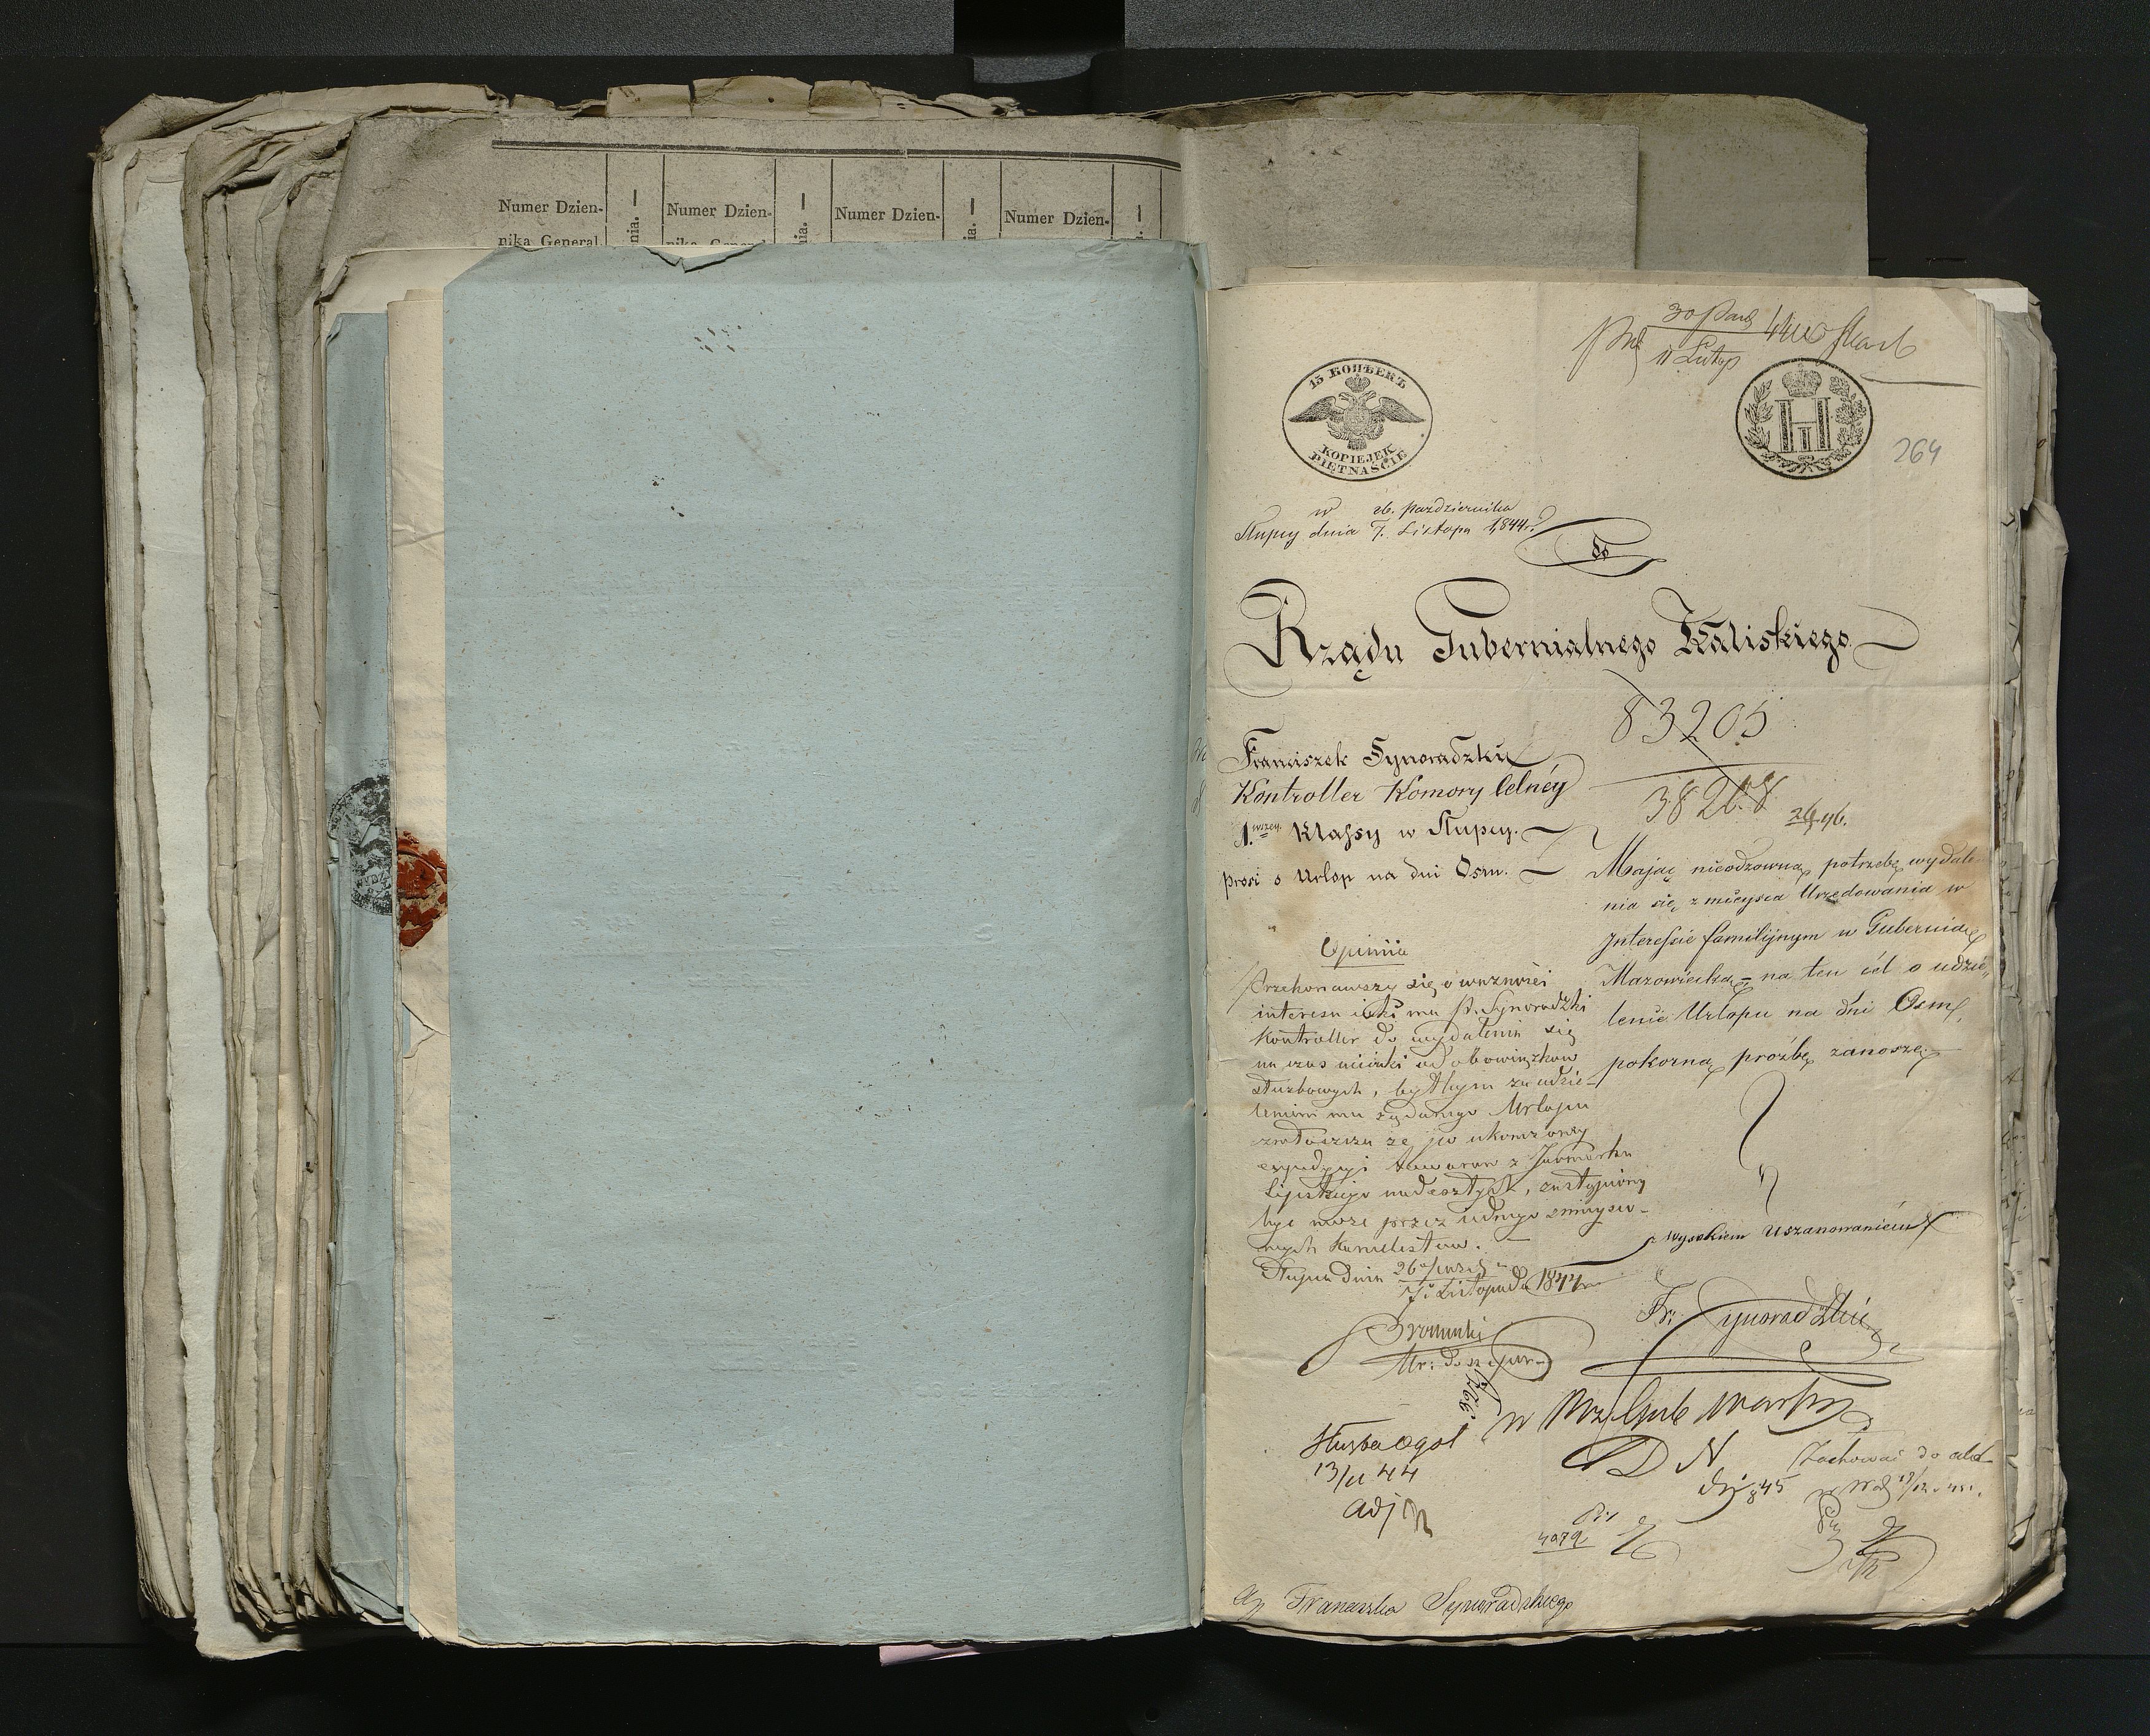 Numer Dzien- Numer Dzien- Numer Dzien- Numer Dzien-
nika General.
30 Paźd
11 Listop
15 КОПѢЕКЪ
KOPIEJEK
PIĘTNAŚCIE
H
I
264
w 26. października
Słupcy dnia 7. Listopa 1844 r.
do
Rządu Gubernialnego Kaliskiego
83205
38208
Franciszek Synoradzki
Kontroller Komory Celnéy
1.wszey Klassy w Słupcy.
prosi o Urlop na dni Osm.
Mając nieodzowną potrzebę wydale
nia się z mieysca Urzędowania w
Interessie familijnym w Gubernią
Mazowiecką - na ten cel o udzie„
lenie Urlopu na dni Osm,
pokorną prozbę zanoszę
Opinia
Przekonawszy się o ważności
interesu iaki ma P. Synoradzki
Kontroller do wydalenia się
na czas od obowiązków
służbowych, byłbym za udzie-
leniem mu żądanego Urlopu
zwłaszcza że po ukończoney
expedycyi towarów z Jarmarku
Lipskiego nadeszłych, zastąpiony
być może przez iednego z mieysco-
wych Kancelistów.
Słupca dnia 26 paźdz
7 Listopada 1844 r
z Wysokiem Uszanowaniem
Fr: Synoradzki
Służba ogól
13/11 44
Adj
D N
845
Zachować do akt
4079
Franciszka Synoradzkiego